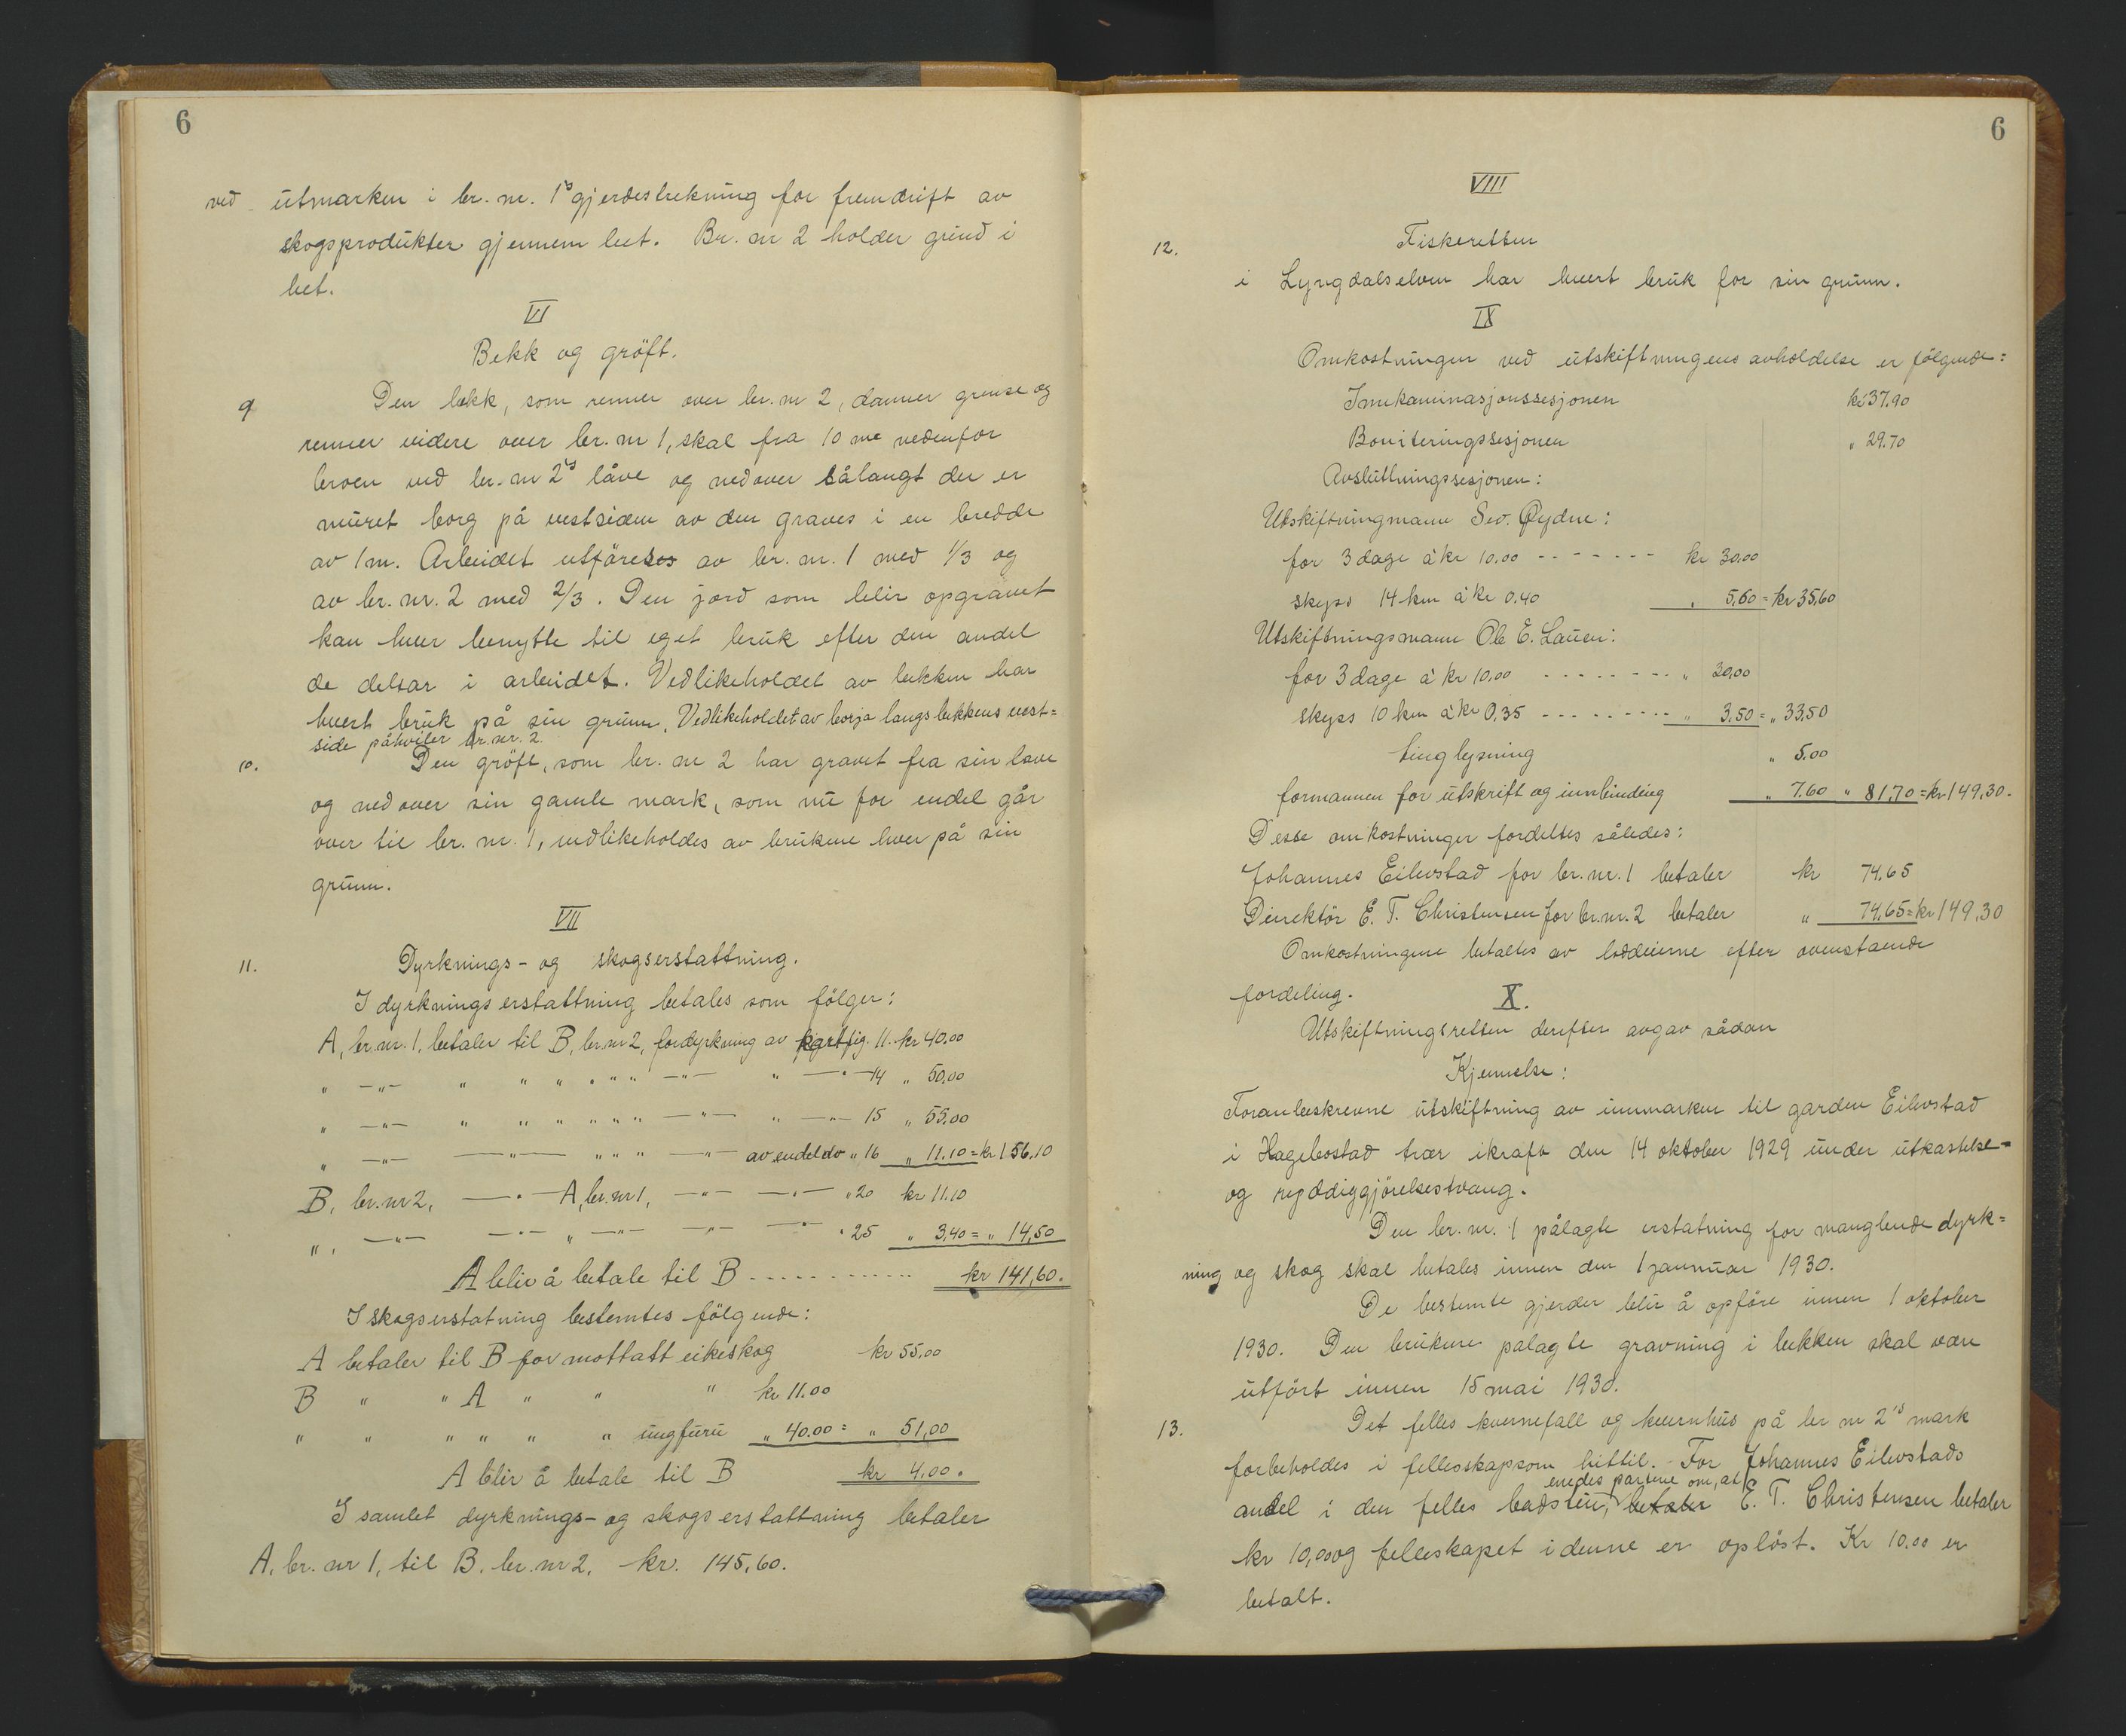 6
ved utmarken i br. nr. 1's gjerdestrekning for fremdrift av
skogsprodukter gjennem leet. Br. nr 2 holder grind i
leet.
VI
Bekk og gröft.
9 Den bekk, som renner over br. nr 2, danner grense og
renner videre over br. nr 1, skal fra 10 me nedenfor
broen ved br. nr 2's låve og nedover sålangt der er
muret borg på vestsiden av den graves i en bredde
av 1 m. Arbeidet utföres av br. nr. 1 med 1/3 og
av br. nr. 2 med 2/3. Den jord som blir opgravet
kan hver benytte til eget bruk efter den andel
de deltar i arbeidet. Vedlikeholdet av bekken har
hvert bruk på sin grunn. Vedlikeholdet av borga langs bekkens vest=
side påhviler br. nr. 2.
10. Den gröft, som br. nr 2 har gravet fra sin låve
og nedover sin gamle mark, som nu for endel går
over til br. nr. 1, vedlikeholdes av brukene hver på sin
grunn.
VII
11. Dyrknings- og skogserstattning.
I dyrkningserstattning betales som fölger:
A, br. nr. 1, betaler til B, br. nr 2, for dyrkning av kartfig. 11. kr 40,00
" —"— " " " " " " —"— " —"— 14 " 50,00
" —"— " " " " " " —"— " —"— 15 " 55,00
" —"— —"— " " " —"— av endel av " 16 " 11.10 = kr 156,10
B, br. nr 2, —"— A, br. nr 1, —"— —"— " 20 kr 11.10
", —"— —"— " —"— —"— —"— " 25 " 3,40 = " 14,50
A bliv å betale til B ------------ kr 141,60.
I skogserstatning bestemtes fölgende:
A betaler til B for mottatt eikeskog kr 55,00
B " " A " " " kr 11.00
" " " " " " ungfuru " 40.00 = " 51,00
A blir å betale til B kr 4.00.
I samlet dyrknings- og skogserstattning betaler
A. br. nr 1, til B. br. nr 2, kr. 145,60.
6
VIII
12. Fiskeretten
i Lyngdalselven har hvert bruk for sin grunn.
IX
Omkostningen ved utskiftningens avholdelse er fölgende:
Inmkaminasjonssesjonen kr 37.90
Boniteringssesjonen " 29.70
Avsluttningssesjonen:
Utskiftningmann Sev. Øydne:
for 3 dage à kr 10.00 ------- kr 30.00
skyss 14 km à kr 0.40 " 5,60 = kr 35,60
Utskiftningsmann Ole E. Lauen:
for 3 dage à kr 10,00 -------- " 30,00
skyss 10 km à kr 0,35 --------- " 3,50 = " 33,50
tinglysning " 5.00
formannen for utskrift og innbinding " 7.60 " 81,70 = kr 149,30.
Desse omkostninger fordeltes således:
Johannes Eilevstad for br. nr. 1 betaler kr 74,65
Direktör E. T. Christensen for br. nr. 2 betaler " 74,65 = kr 149,30
Omkostningene betaltes av loddeierne efter ovenstaende
fordeling.
X.
Utskiftningsretten derefter avgav sådan
Kjennelse:
Foranbeskrevne utskiftning av innmarken til garden Eilevstad
i Hægebostad trær ikraft den 14 oktober 1929 under utkastelse-
og ryddiggjörelsestvang.
Den br. nr. 1 pålagte erstatning for manglende dyrk=
ning og skog skal betales innen den 1 januar 1930.
De bestemte gjerder blir å opföre innen 1 oktober
1930. Den brukene palagte gravning i bekken skal være
utfört innen 15 mai 1930.
13. Det felles kvernefall og kvernhus på br nr 2's mark
forbeholdes i fellesskap som hittil. - For Johannes Eilevstads
enedes partene om, at
andel i den felles badstu, betaler E. T. Christensen betaler
kr 10,00 og felleskapet i denne er oplöst. Kr 10.00 er
betalt.